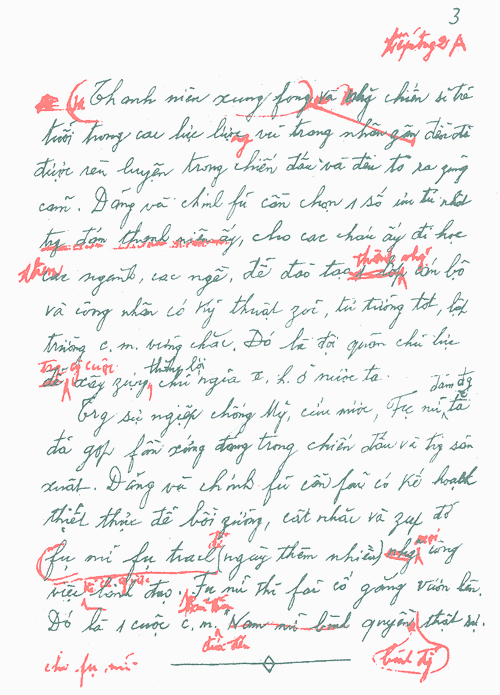 3
tiếp trg 2A
Thanh niên xung fong và những chiến sĩ trẻ
tuổi trong các lực lượng vũ trang nhân dân đều đã
được rèn luyện trong chiến đấu và đều tỏ ra zũng
cảm. Đảng và chính fủ cần chọn 1 số ưu tú nhất
trg đám thanh niên ấy, cho các cháu ấy đi học
thêm
các ngành, các ngề, để đào tạo thành những cán bộ
và công nhân có kỹ thuật zỏi, tư tưởng tốt, lập
trường c.m. vững chắc. Đó là đội quân chủ lực
trg công cuộc thắng lợi
xây zựng chủ ngĩa x. h. ở nước ta.
đảm đg
Trg sự ngiệp chống Mỹ, cứu nước, Fụ nữ ta
đã góp fần xứng đáng trong chiến đấu và trg sản
xuất. Đảng và chính fủ cần fải có kế hoạch
thiết thực để bồi zưỡng, cất nhắc và zúp đỡ
để mọi
fụ nữ fụ trách (ngày thêm nhiều) công
kể cả
việc lãnh đạo. Fụ nữ thì fải cố gắng vươn lên.
Đó là 1 cuộc c.m. Nam nữ bình quyền thật sự.
đưa đến bình đg
cho fụ nữ.